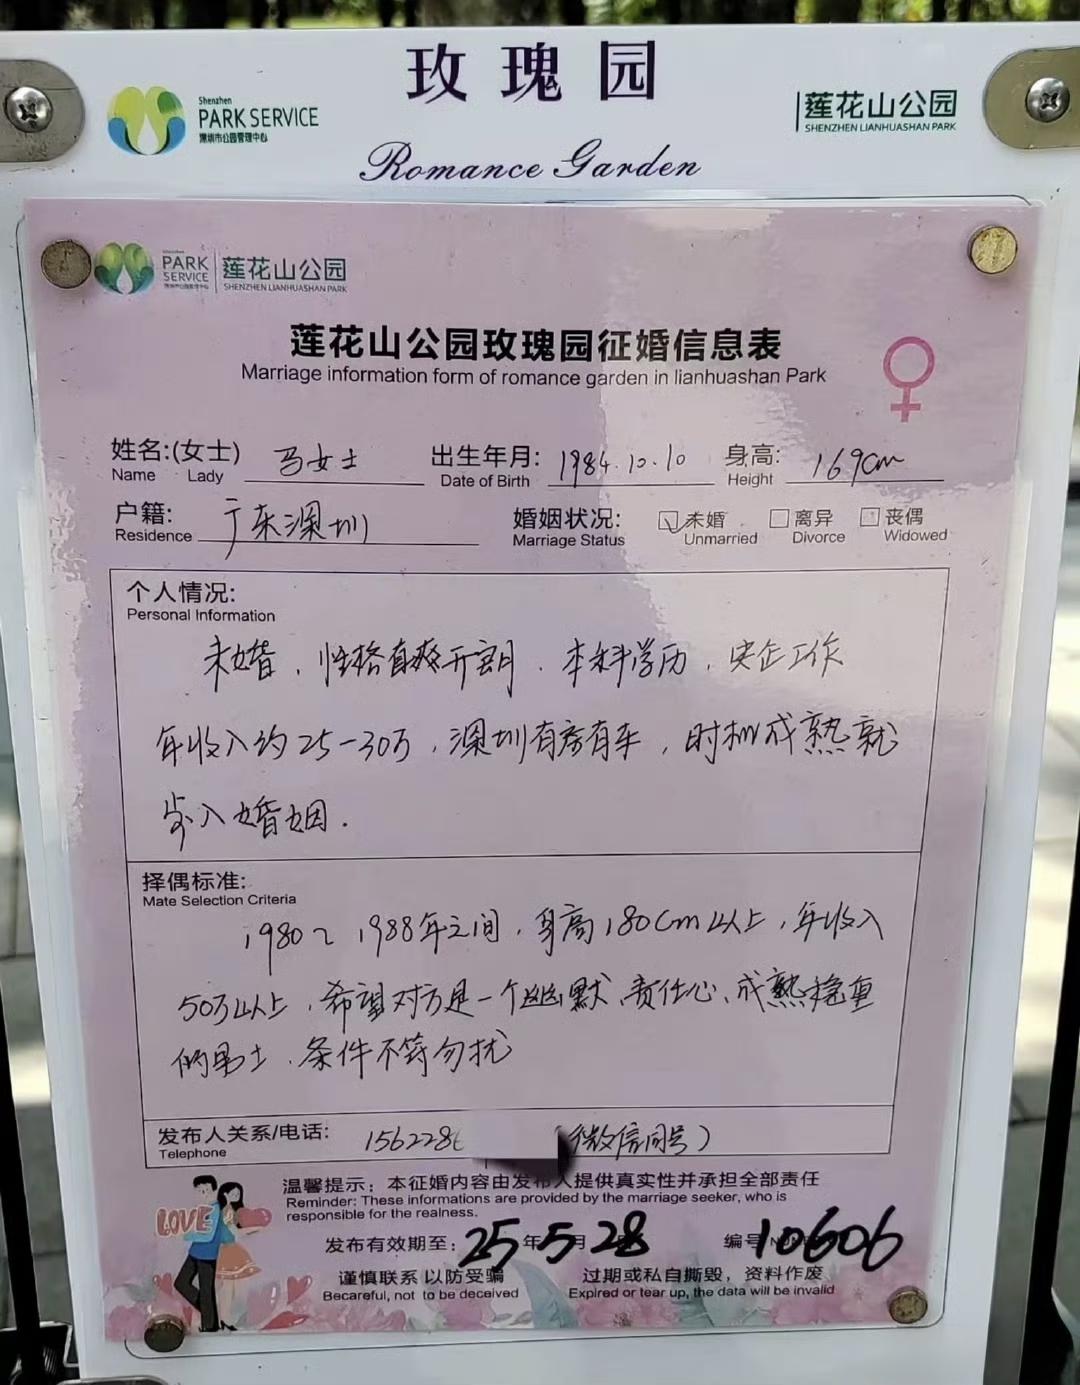 玫瑰园
Shenzhen
PARK SERVICE
深圳市公园管理中心
莲花山公园
SHENZHEN LIANHUASHAN PARK
Romance Garden
PARK SERVICE
莲花山公园
SHENZHEN LIANHUASHAN PARK
莲花山公园玫瑰园征婚信息表
Marriage information form of romance garden in lianhuashan Park
姓名:(女士) 马女士 出生年月: 1984.10.10 身高: 169cm
Name Lady Date of Birth Height
户籍: 广东深圳 婚姻状况: 未婚 离异 丧偶
Residence Marriage Status Unmarried Divorce Widowed
个人情况:
Personal Information
未婚，性格直爽开朗，本科学历，央企工作
年收入约25-30万，深圳有房有车，时机成熟就
步入婚姻.
择偶标准:
Mate Selection Criteria
1980~1988年之间，身高180cm以上，年收入
50万以上，希望对方是一个幽默、责任心、成熟稳重
的男士，条件不符勿扰
发布人关系/电话: 1562286 (微信同号)
Telephone
温馨提示：本征婚内容由发布人提供真实性并承担全部责任
Reminder: These informations are provided by the marriage seeker, who is
responsible for the realness.
LOVE
发布有效期至: 25年5月28 编号 10606
谨慎联系 以防受骗 过期或私自撕毁，资料作废
Becareful, not to be deceived Expired or tear up, the data will be invalid